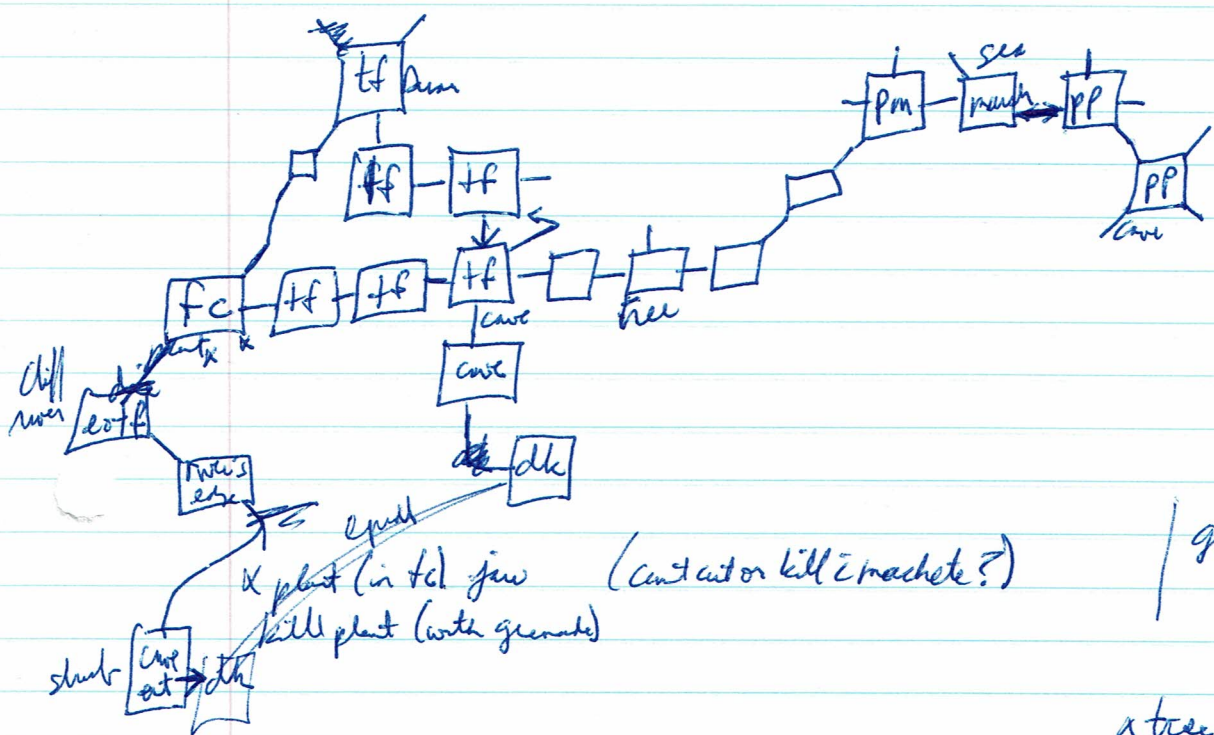 tf
sea
pm
marsh
pp
tf tf
pp
cave
fc tf tf tf
cave
tree
plant x x
cave
Cliff
river
eotf
river's
edge
dk
equal
x plant (in fc) jaw (can't cut or kill c̄ machete?)
kill plant (with grenade)
shrub
cave
ent
dk
g
x tree